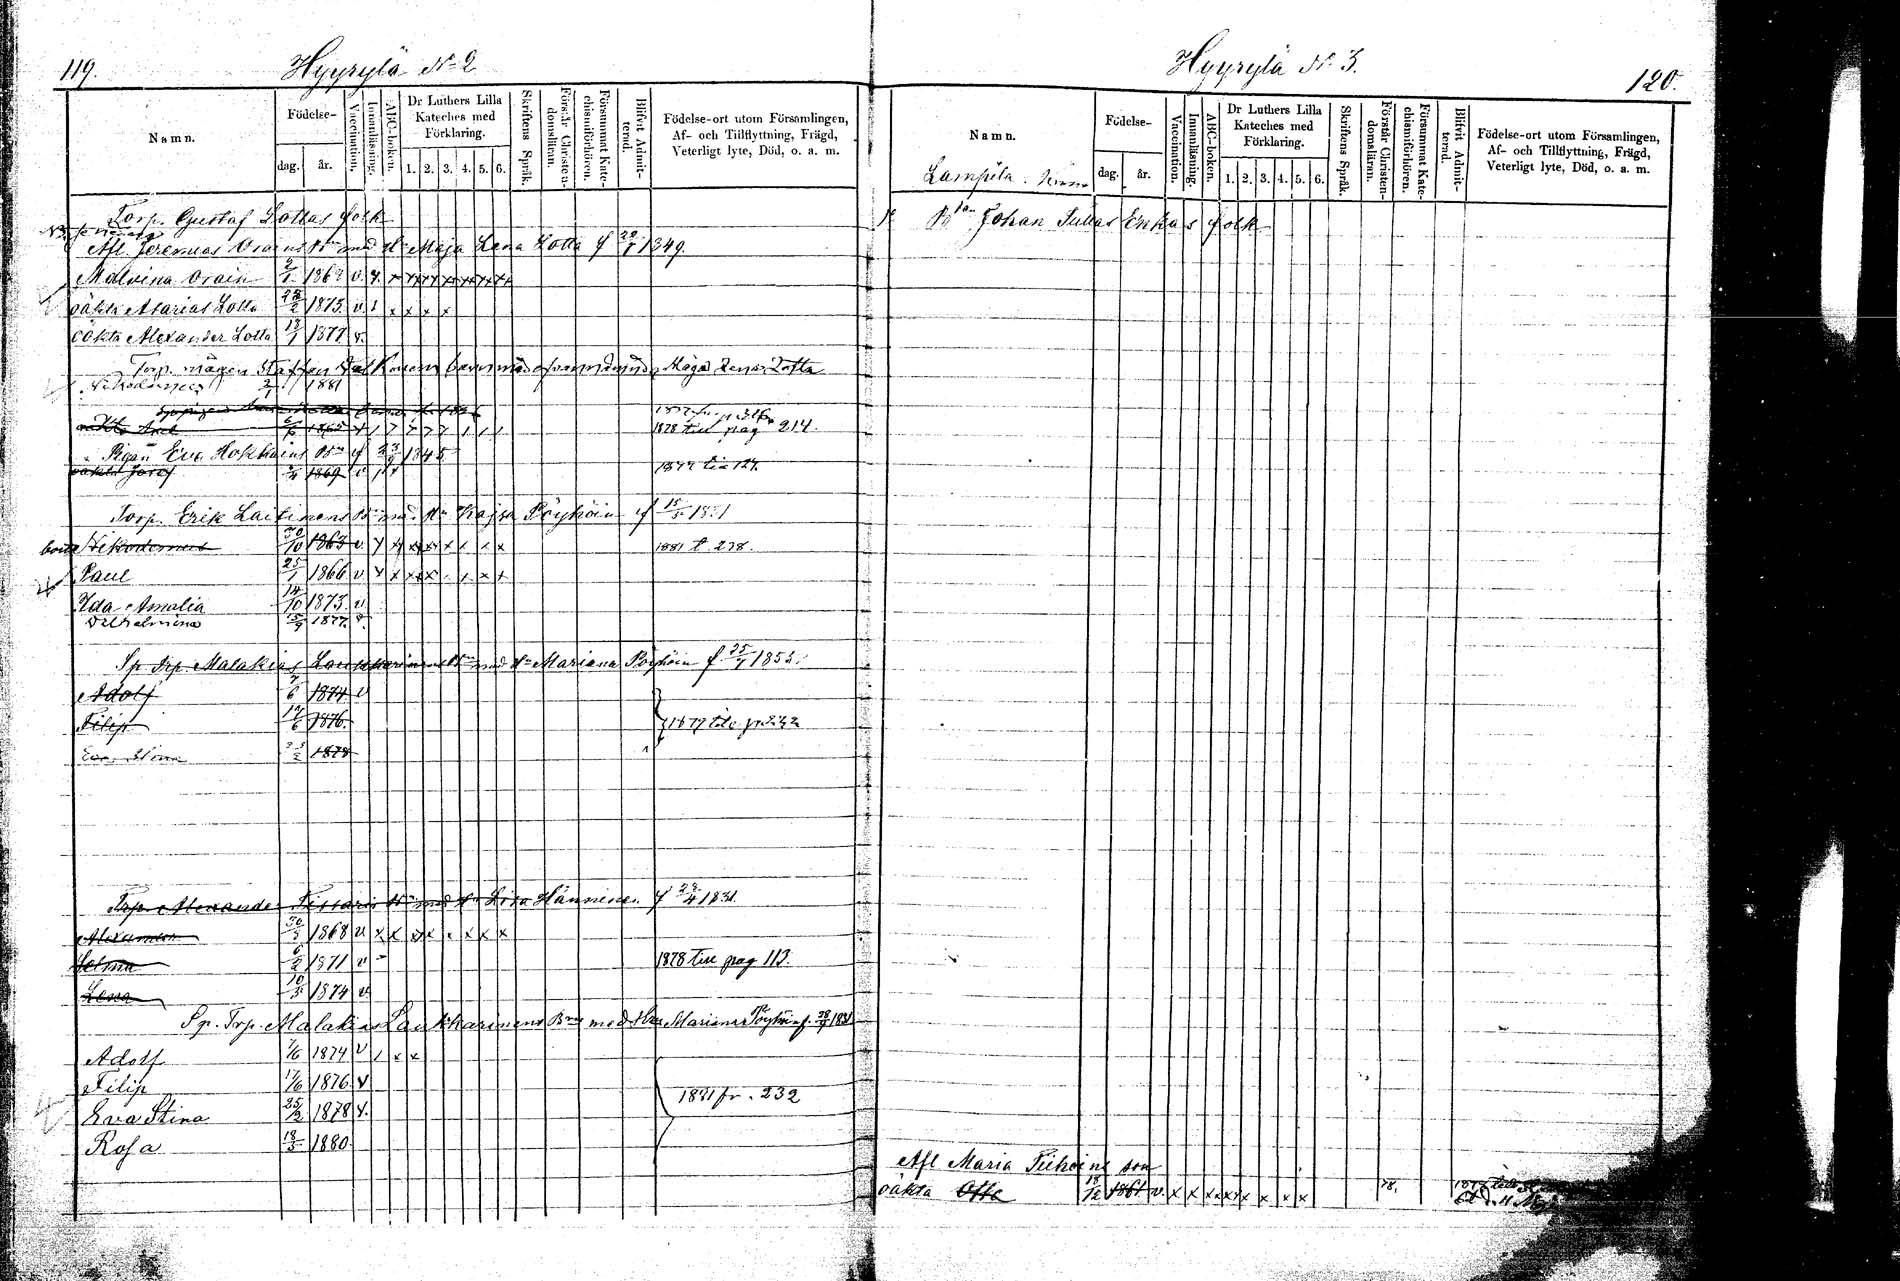 119.
Hyyrylä No 2
Namn.
Födelse-
dag.
år.
Vaccination.
Innanläsning.
ABC-boken.
Dr Luthers Lilla
Kateches med
Förklaring.
1. 2. 3. 4. 5. 6.
Skriftens Språk.
Förstår Christen-
domsläran.
Försummat Kate-
chismiförhören.
Blifvit Admit-
terad.
Födelse-ort utom Församlingen,
Af- och Tillflyttning, Frägd,
Veterligt lyte, Död, o. a. m.
Torp. Gustaf Lottas folk
Afl. Jeremias Orains Bn med Hu Maja Lena Lotta f 1849.
Malvina Orain 1869 v.
oäkta Asarias Lotta 28/2 1875 v
oäkta Alexander Lotta 18/1 1877 v.
Torp. mågen Staffan barn med Maja Lena Lotta
Nikodemus 1881
oäkta Axel 1865
1878 till pag 214.
Pigan Eva Hokkains Bn f 1845
oäkta Josef 1869 v
Torp. Erik Laitinens Bn med Hu Kajsa Pöyhöin f 15/5 1831
Nikodemus 30/10 1863 v
1881 t. 238.
Paul 25/1 1866 v
Ida Amalia 14/10 1873 v
Vilhelmina 1877. v.
Sp. Trp. Malakias Laukkarinens Bn med Hu Mariana Pöyhöin f 25/ 1853.
Adolf 7/6 1874 v
Filip 17/6 1876.
1879 till p. 232
Eva Stina 25/2 1878
Trp. Alexander Tissaris Bn med Hu Lisa Hänninen f 28/4 1831.
Alexander 30/ 1868 v
Selma 6/2 1871 v
1878 till pag 113.
Lena 10/3 1874 v.
Sp. Trp. Malakias Laukkarinens Bn med Hu Mariana Pöyhöin f.
Adolf 7/6 1874 v
Filip 17/6 1876 v
Eva Stina 25/2 1878 v.
1881 fr. 232
Rosa 18/5 1880.
Hyyrylä No 3.
120.
Namn.
Lampila
Födelse-
dag.
år.
Vaccination.
Innanläsning.
ABC-boken.
Dr Luthers Lilla
Kateches med
Förklaring.
1. 2. 3. 4. 5. 6.
Skriftens Språk.
Förstår Christen-
domsläran.
Försummat Kate-
chismiförhören.
Blifvit Admit-
terad.
Födelse-ort utom Församlingen,
Af- och Tillflyttning, Frägd,
Veterligt lyte, Död, o. a. m.
Johan Tullas Enkas folk
Afl Maria Tiihoins son
oäkta Otto 18/12 1861 v.
78.